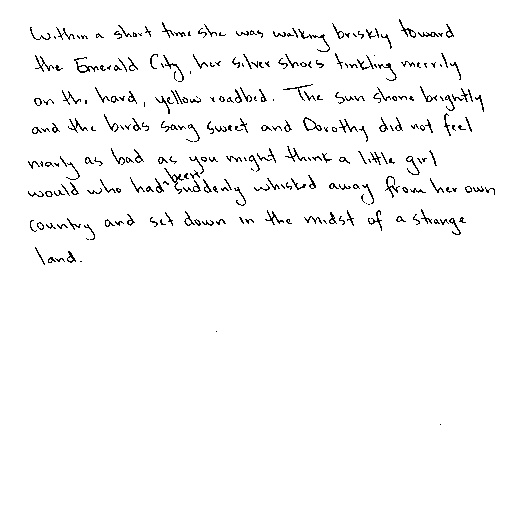 Within a short time she was walking briskly toward
the Emerald City, her silver shoes tinkling merrily
on the hard, yellow roadbed. The sun shone brightly
and the birds sang sweet and Dorothy did not feel
nearly as bad as you might think a little girl
would who had been suddenly whisked away from her own
country and set down in the midst of a strange
land.